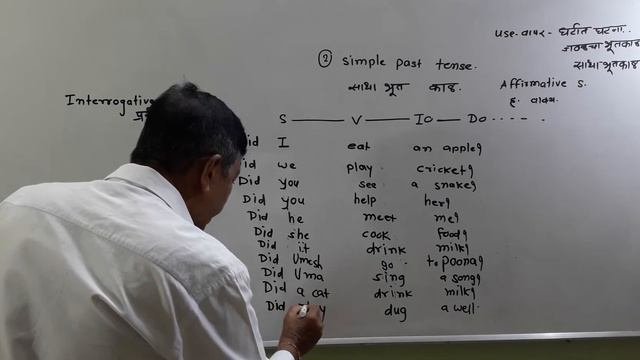 use. वापर - घटीत घटना.
साधा भूतकाळ
② simple past tense.
साधा भूत काळ.
Affirmative S.
ह. वाक्य.
Interrogative
S V Io Do
Did I eat an apple?
Did we play cricket?
Did you see a snake?
Did you help her?
Did he meet me?
Did she cook food?
Did it drink milk?
Did Umesh go to Poona?
Did Uma sing a song?
Did a cat drink milk?
Did dug a well.